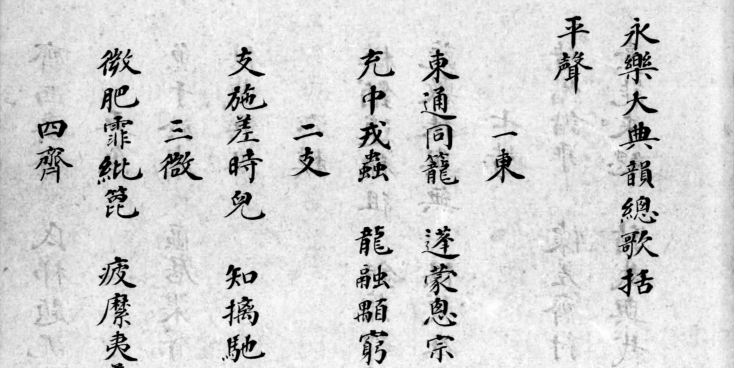 永樂大典韻總歌括
平聲
一東
東通同籠 蓬蒙悤宗
充中戎蟲 龍融顒窮
二支
支施差時兒 知摛馳
三微
微肥霏紕箆 疲縻夷
四齊